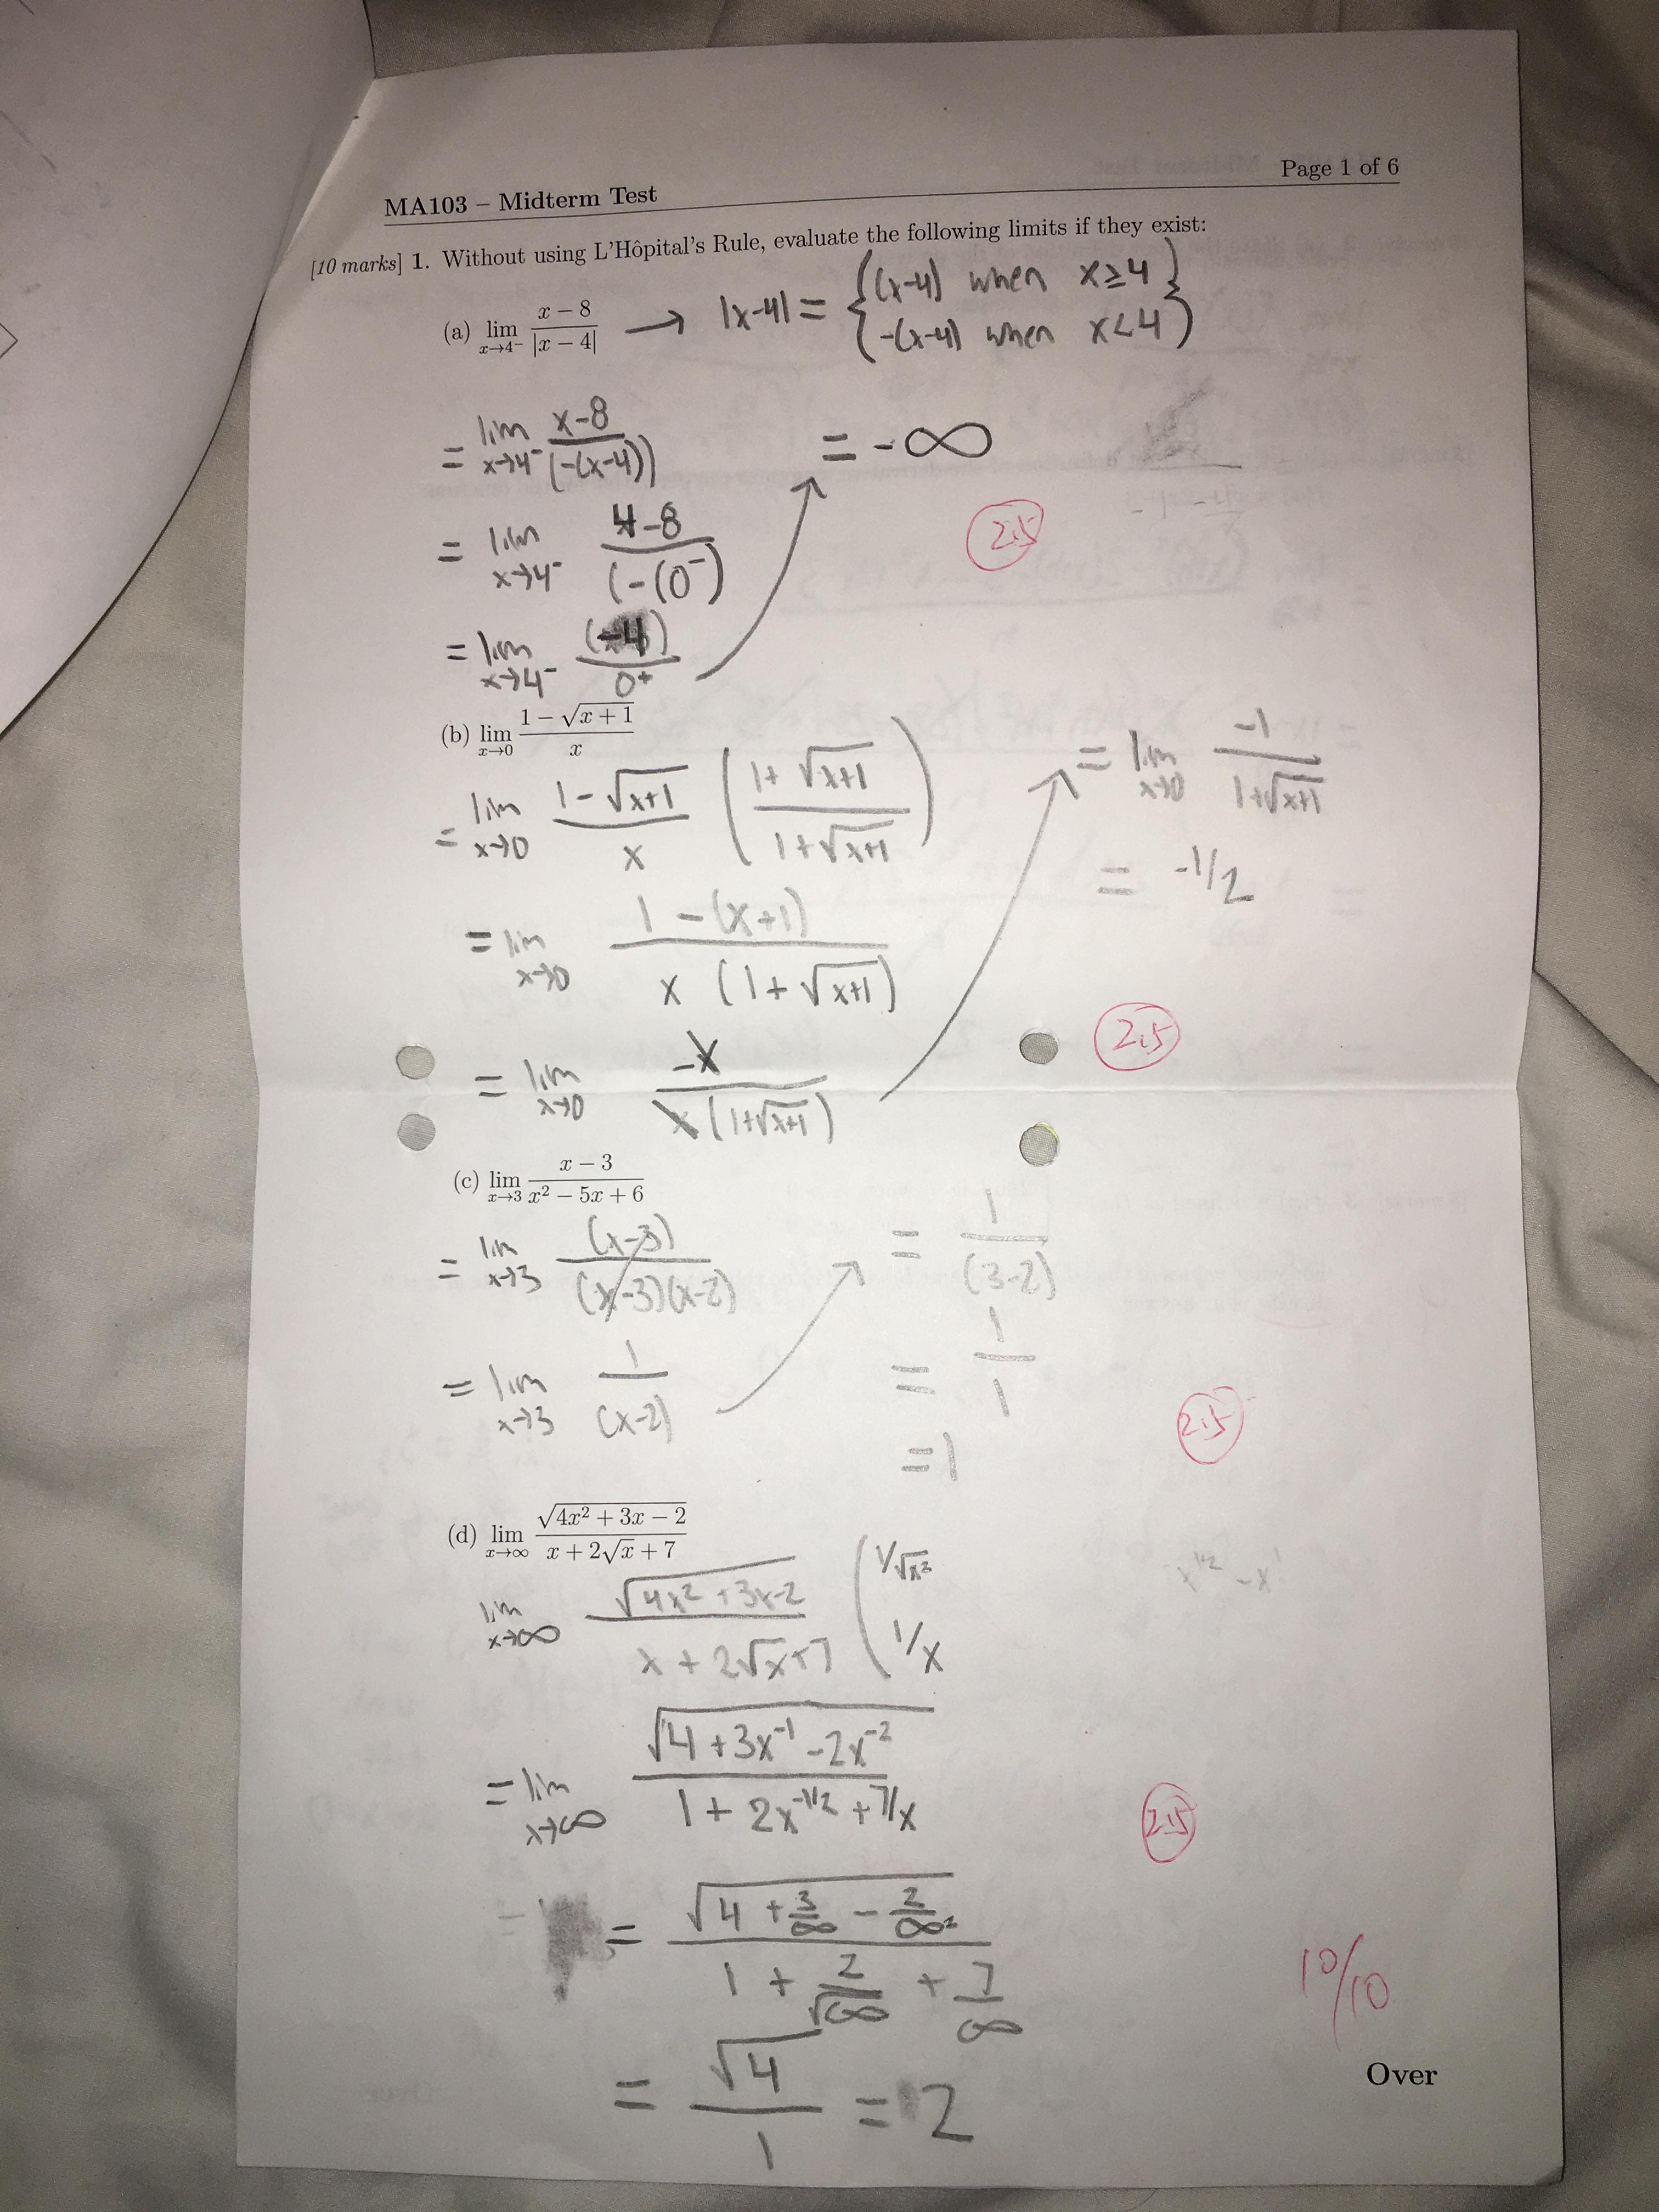 MA103 – Midterm Test Page 1 of 6
[10 marks] 1. Without using L'Hôpital's Rule, evaluate the following limits if they exist:
(a) lim x→4⁻ (x − 8)/|x − 4| → |x-4| = { (x-4) when x≥4
-(x-4) when x<4 }
= lim x→4⁻ (x-8)/(-(x-4)) = -∞
= lim x→4⁻ (4-8)/(-(0⁻)
2.5
= lim x→4⁻ (-4)/0⁺
(b) lim x→0 (1 − √(x + 1))/x
= lim x→0 (1-√(x+1))/x ((1+√(x+1))/(1+√(x+1))) = lim x→0 -1/(1+√(x+1))
= -1/2
= lim x→0 (1-(x+1))/(x (1+√(x+1)))
2.5
= lim x→0 -x/(x(1+√(x+1)))
(c) lim x→3 (x − 3)/(x² − 5x + 6)
= lim x→3 (x-3)/((x-3)(x-2)) = 1/(3-2)
= lim x→3 1/(x-2) = 1/1
2.5
= 1
(d) lim x→∞ √(4x² + 3x − 2)/(x + 2√x + 7)
lim x→∞ √(4x²+3x-2)/(x+2√x+7) ( 1/√x² 1/x
x^1/2 - x^1
= lim x→∞ √(4+3x⁻¹-2x⁻²)/(1+2x^-1/2+7/x)
2.5
= √(4+3/∞-2/∞²)/(1+2/√∞+7/∞)
10/10
Over
= √4/1 = 2